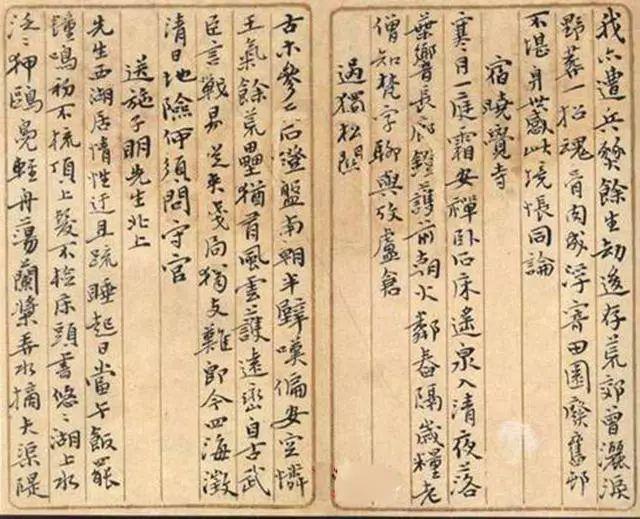 我亦遭兵燹餘生劫後存荒郊曾灑淚
野葬一招魂骨肉成浮寄田園廢舊邨
不堪身世感此境悵同論
宿曉覺寺
寒月一庭霜安禪臥石床遙泉入清夜落
葉響長廊鐙護前朝火鄰舂隔歲糧老
僧知梵字聊與攷盧倉
過獨松關
古木參天石磴盤南朝半壁嘆偏安空憐
王氣餘荒壘猶有風雲護遠巒自古武
臣言戰易從來殘局猶支難即今四海澂
清日地險仰須問守官
送施子明先生北上
先生西湖居情性迂且疏睡起日當午飯罷
鐘鳴初不梳頂上髮不檢床頭書悠悠湖上水
泛泛狎鷗鳧輕舟蕩蘭槳弄水摘大渠隄